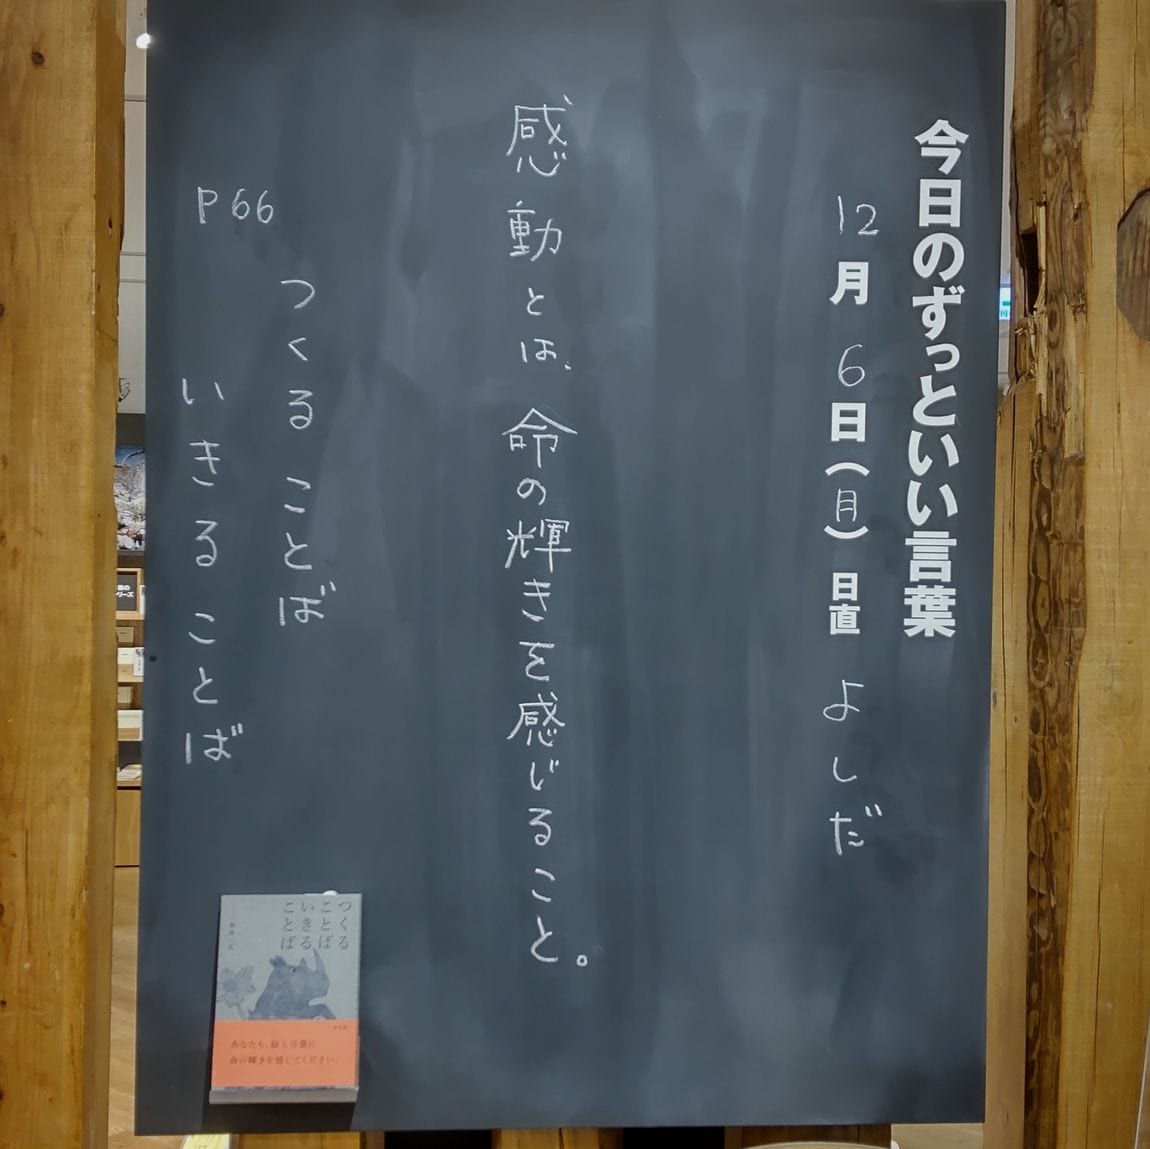 今日のずっといい言葉
12月6日(月)日直 よしだ
感動とは、命の輝きを感じること。
つくることば
いきることば
P66
つくる
ことば
いきる
ことば
あなたも、絵と言葉に
命の輝きを感じてください。